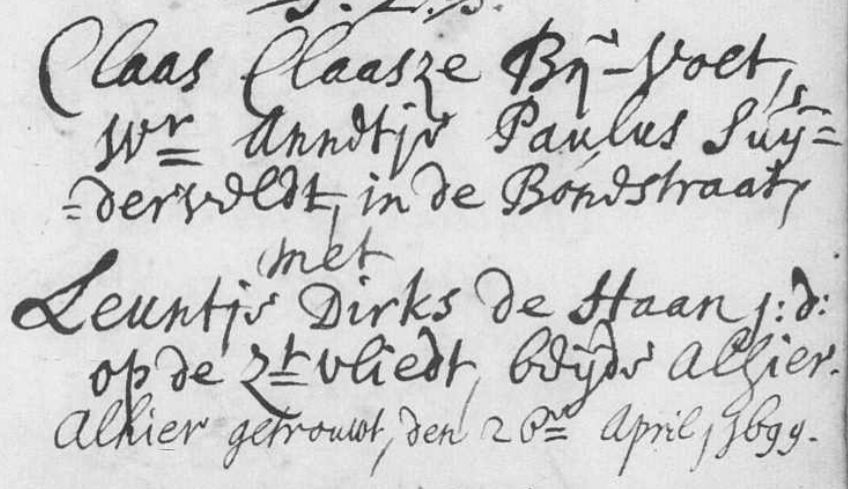 Claas Claasze Bij-Voet,
Wr Anndtje Paulus Suij=
=derveldt, in de Bondstraat,
met
Leuntje Dirks de Haan j:d:
op de Zt vliedt, beijde Alhier.
Alhier getrouwt, den 26n April, 1699.